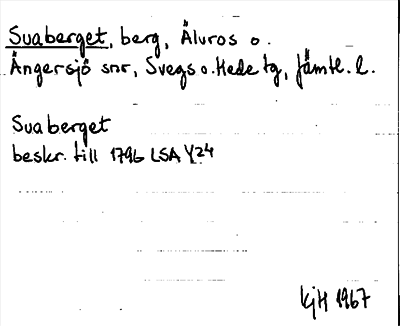 Suaberget, berg, Älvros o.
Ängersjö snr, Svegs o. Hede tg, Jämtl. l.
Suaberget
beskr. till 1796 LSA Y24
KjH 1967